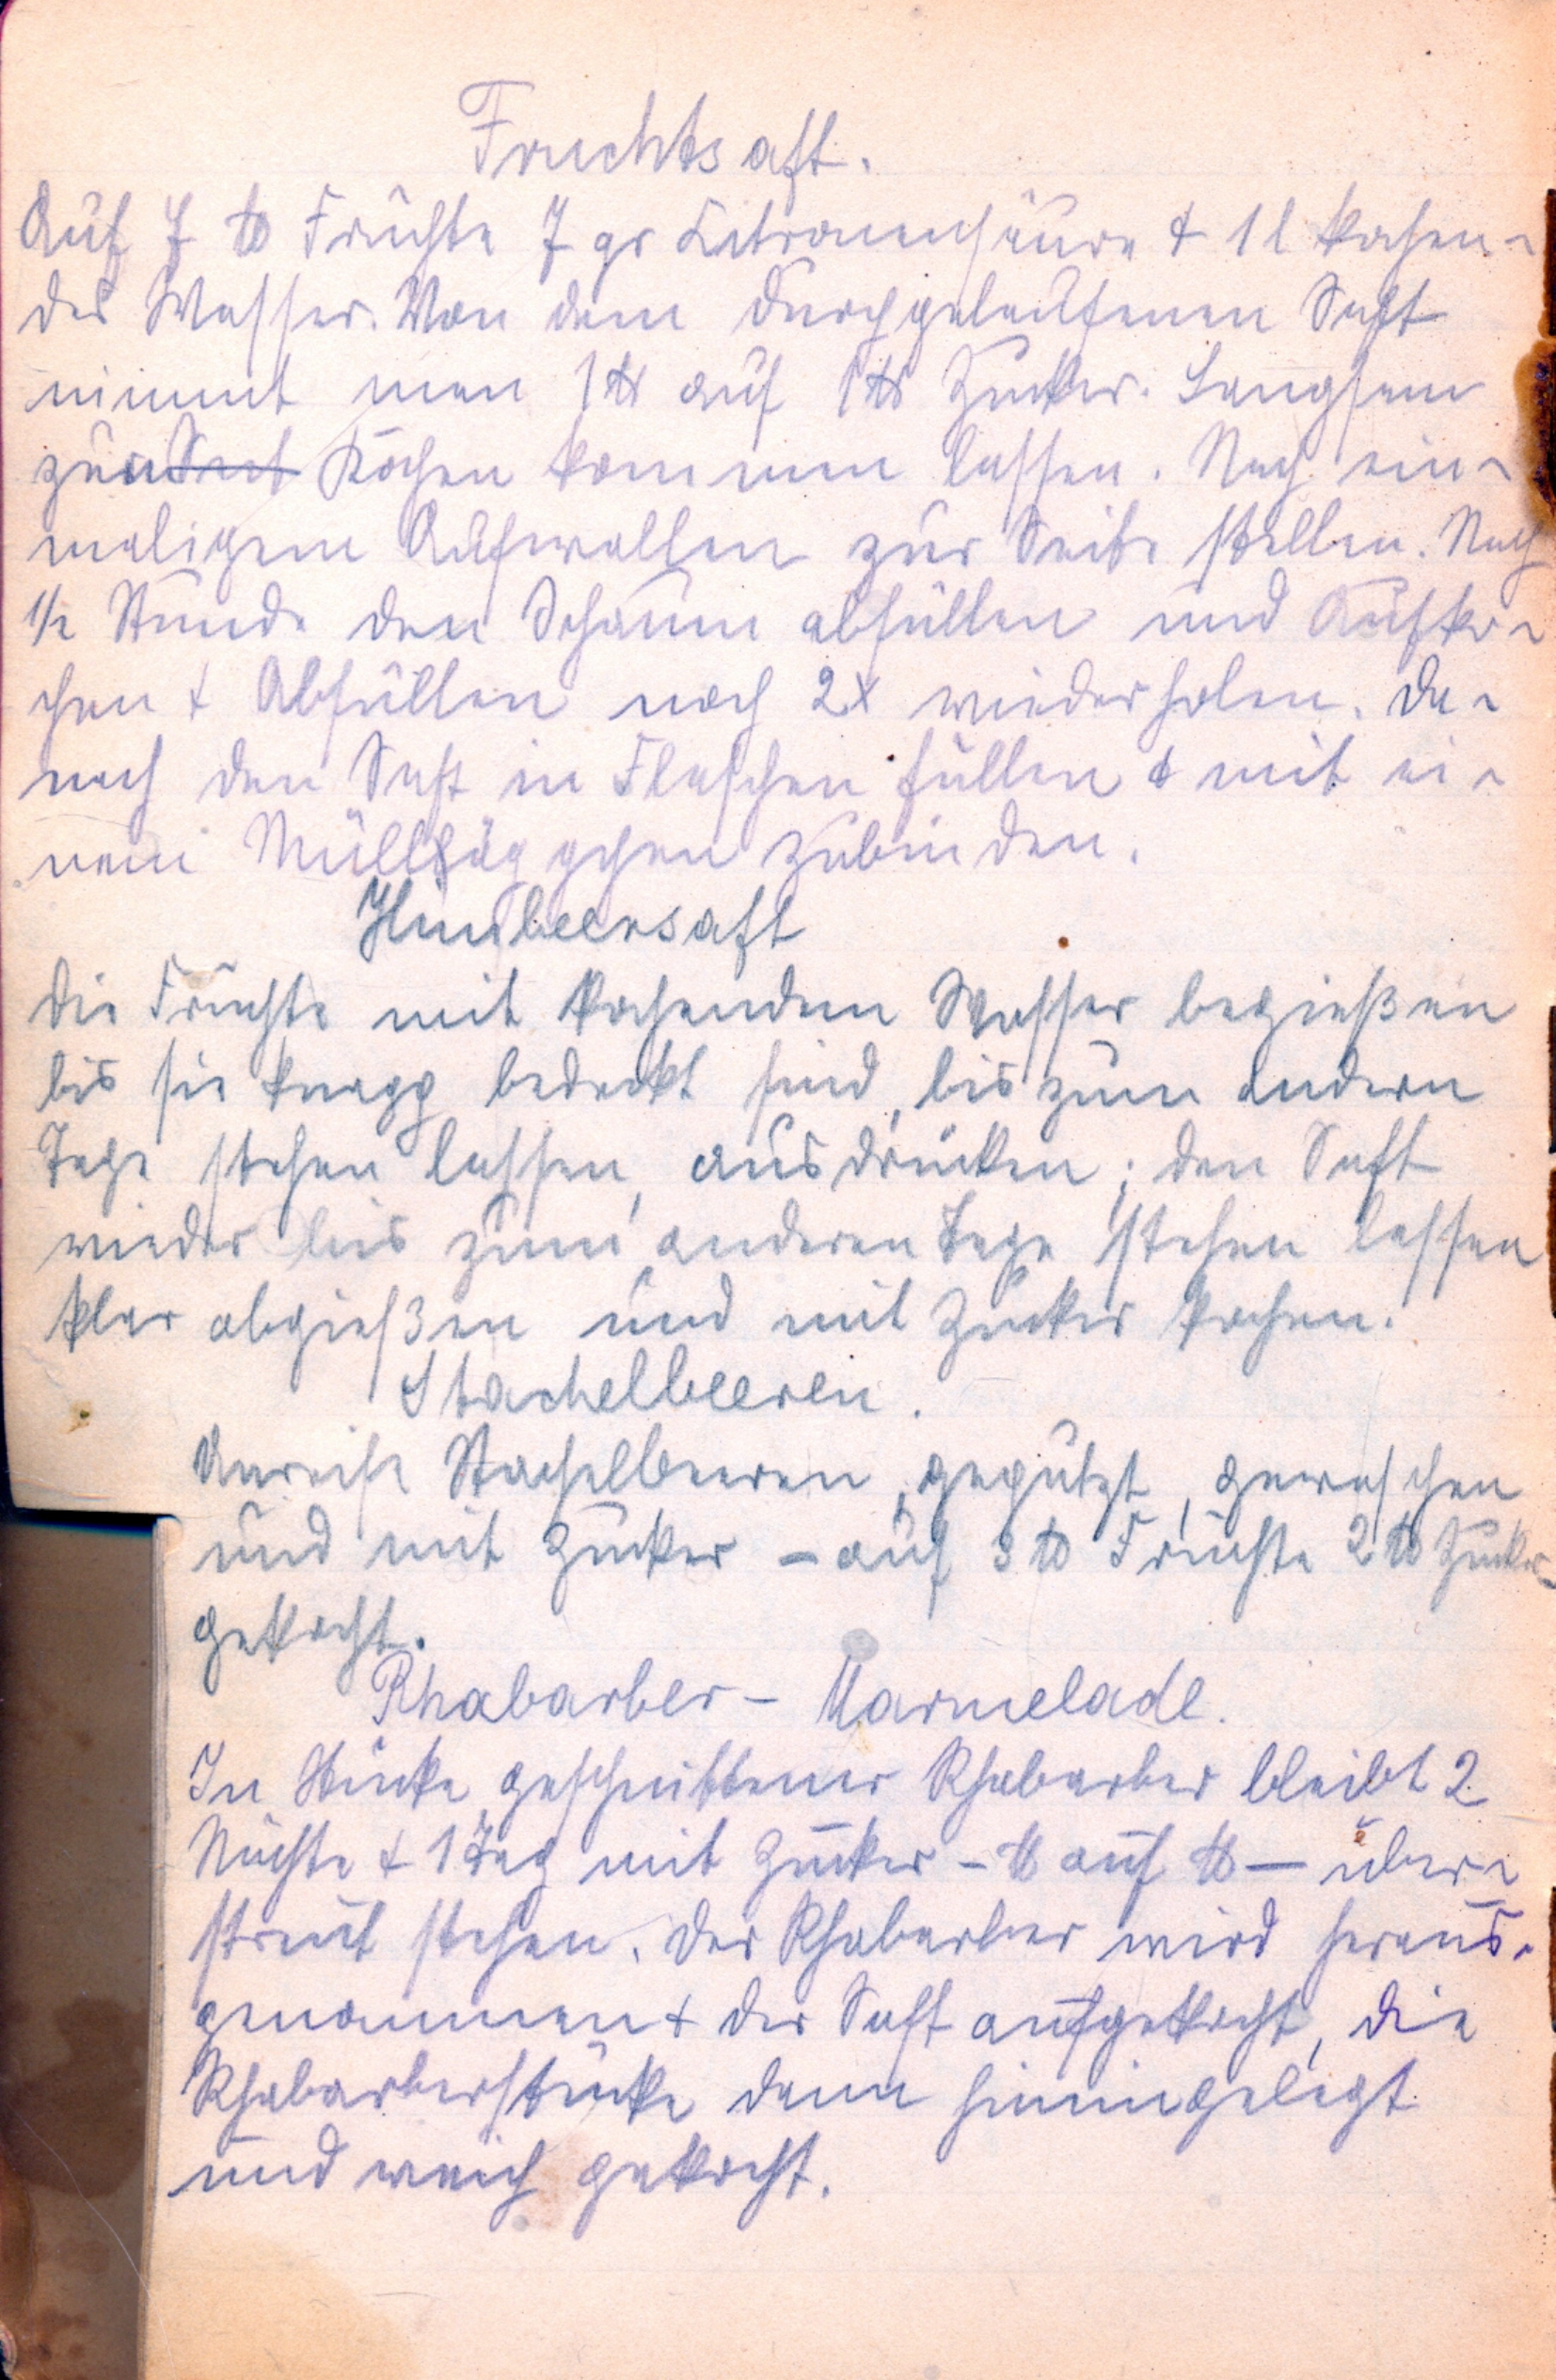 Fruchtsaft.
Auf 7 ℔ Früchte 7 gr Zitronensäure & 1 l kochen-
des Wasser. Von dem durchgelaufenen Saft
nimmt man 1 ℔ auf 1 ℔ Zucker. Langsam
zum Kochen kommen lassen. Nach ein-
maligem Aufwallen zur Seite stellen. Nach
1/2 Stunde den Schaum abfüllen und Aufko-
chen & Abfüllen noch 2x wiederholen. Da-
nach den Saft in Flaschen füllen & mit ei-
nem Mullsäckchen zubinden.
Himbeersaft
Die Früchte mit kochendem Wasser begießen
bis sie knapp bedeckt sind, bis zum andern
Tage stehen lassen, ausdrücken; den Saft
wieder bis zum anderen Tage stehen lassen
klar abgießen und mit Zucker kochen.
Stachelbeeren.
Unreife Stachelbeeren, geputzt, gewaschen
und mit Zucker - auf 3 ℔ Früchte 2 ℔ Zucker-
gekocht.
Rhabarber - Marmelade.
In Stücke geschnittener Rhabarber bleibt 2
Nächte & 1 Tag mit Zucker - ℔ auf ℔ - über-
streut stehen. Der Rhabarber wird heraus-
genommen & der Saft aufgekocht, die
Rhabarberstücke dann hineingelegt
und weich gekocht.